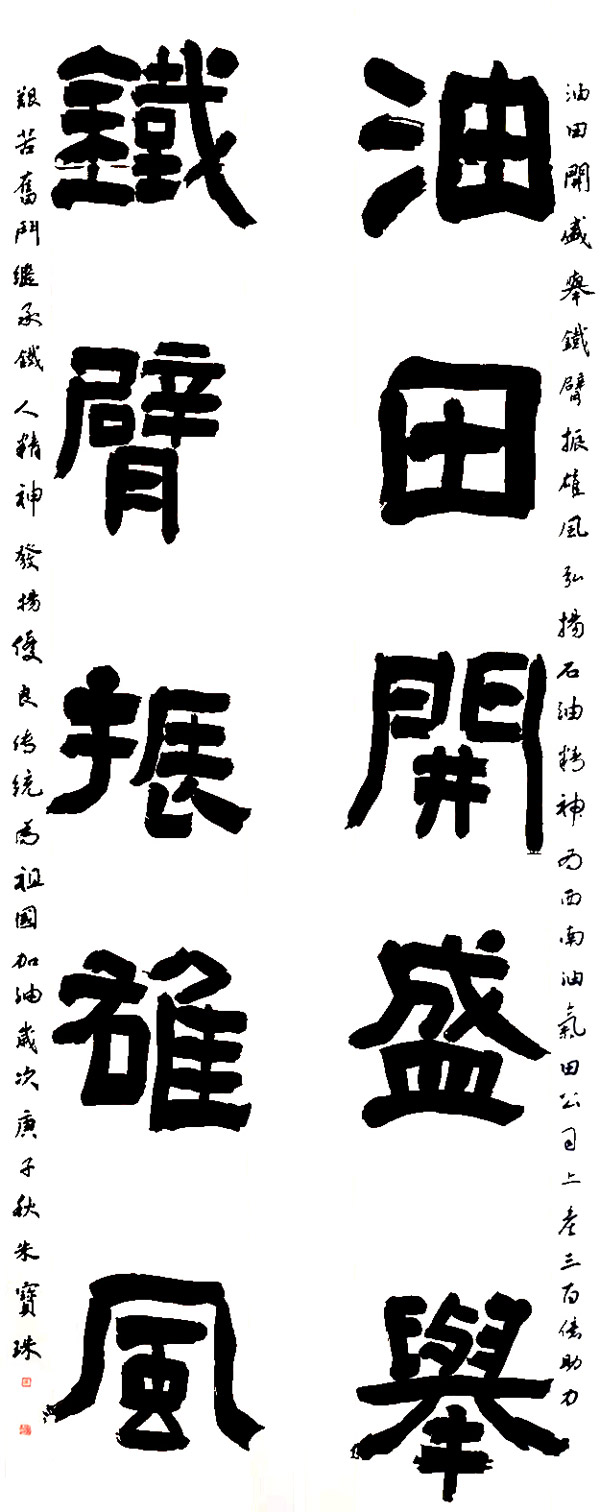 油田開盛舉鐵臂振雄風弘揚石油精神为西南油氣田公司上產三百億助力
油田開盛舉
鐵臂振雄風
艱苦奮鬥繼承鐵人精神發揚優良傳統為祖國加油歲次庚子秋朱寶珠